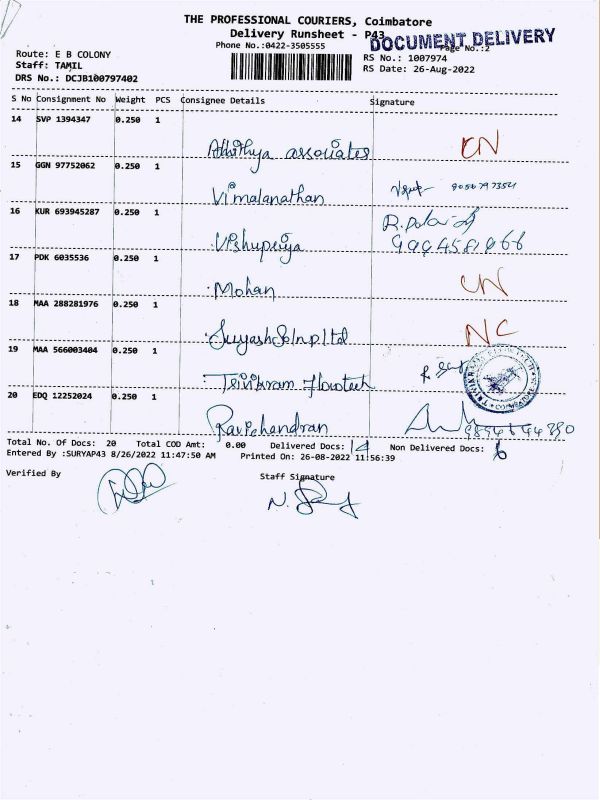 THE PROFESSIONAL COURIERS, Coimbatore
Delivery Runsheet - P43
DOCUMENT DELIVERY
Phone No.:0422-3505555
Page No.:2
Route: E B COLONY
RS No.: 1007974
Staff: TAMIL
RS Date: 26-Aug-2022
DRS No.: DCJB100797402
S No Consignment No Weight PCS Consignee Details Signature
14 SVP 1394347 0.250 1
Adhithya associates
15 GGN 97752062 0.250 1
Vimalanathan
16 KUR 693945287 0.250 1
Vishupriya
17 PDK 6035536 0.250 1
Mohan
18 MAA 288281976 0.250 1
NC
19 MAA 566003404 0.250 1
Flowtech
20 EDQ 12252024 0.250 1
Ravichandran
Total No. Of Docs: 20 Total COD Amt: 0.00 Delivered Docs: 14 Non Delivered Docs: 6
Entered By :SURYAP43 8/26/2022 11:47:50 AM Printed On: 26-08-2022 11:56:39
Verified By Staff Signature